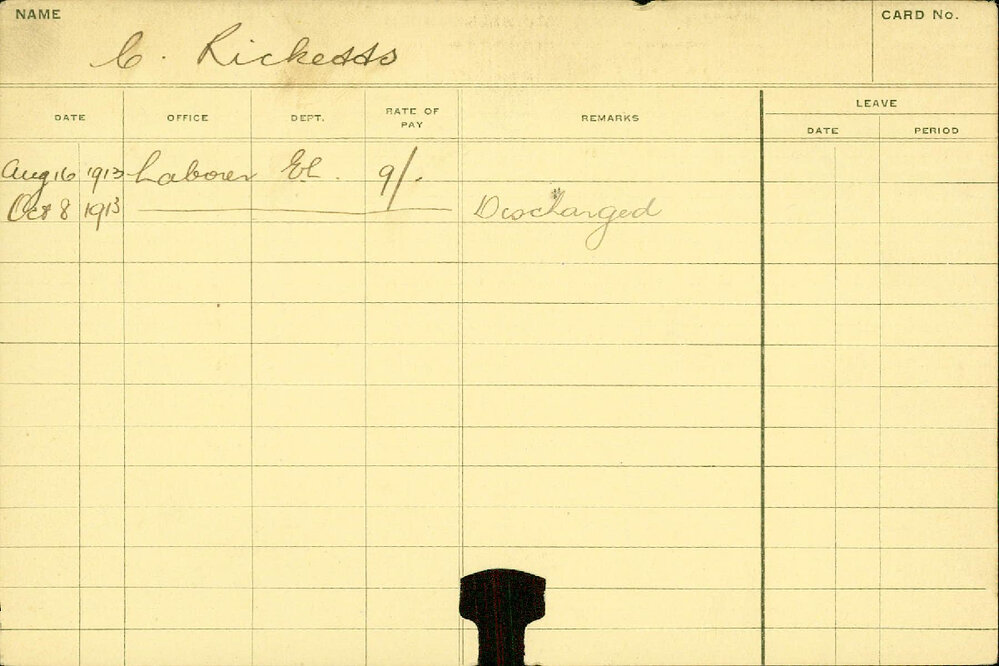 NAME
CARD No.
C. Ricketts
DATE OFFICE DEPT. RATE OF PAY REMARKS LEAVE
DATE PERIOD
Aug 16 1913 Laborer El. 9/-
Oct 8 1913 Discharged